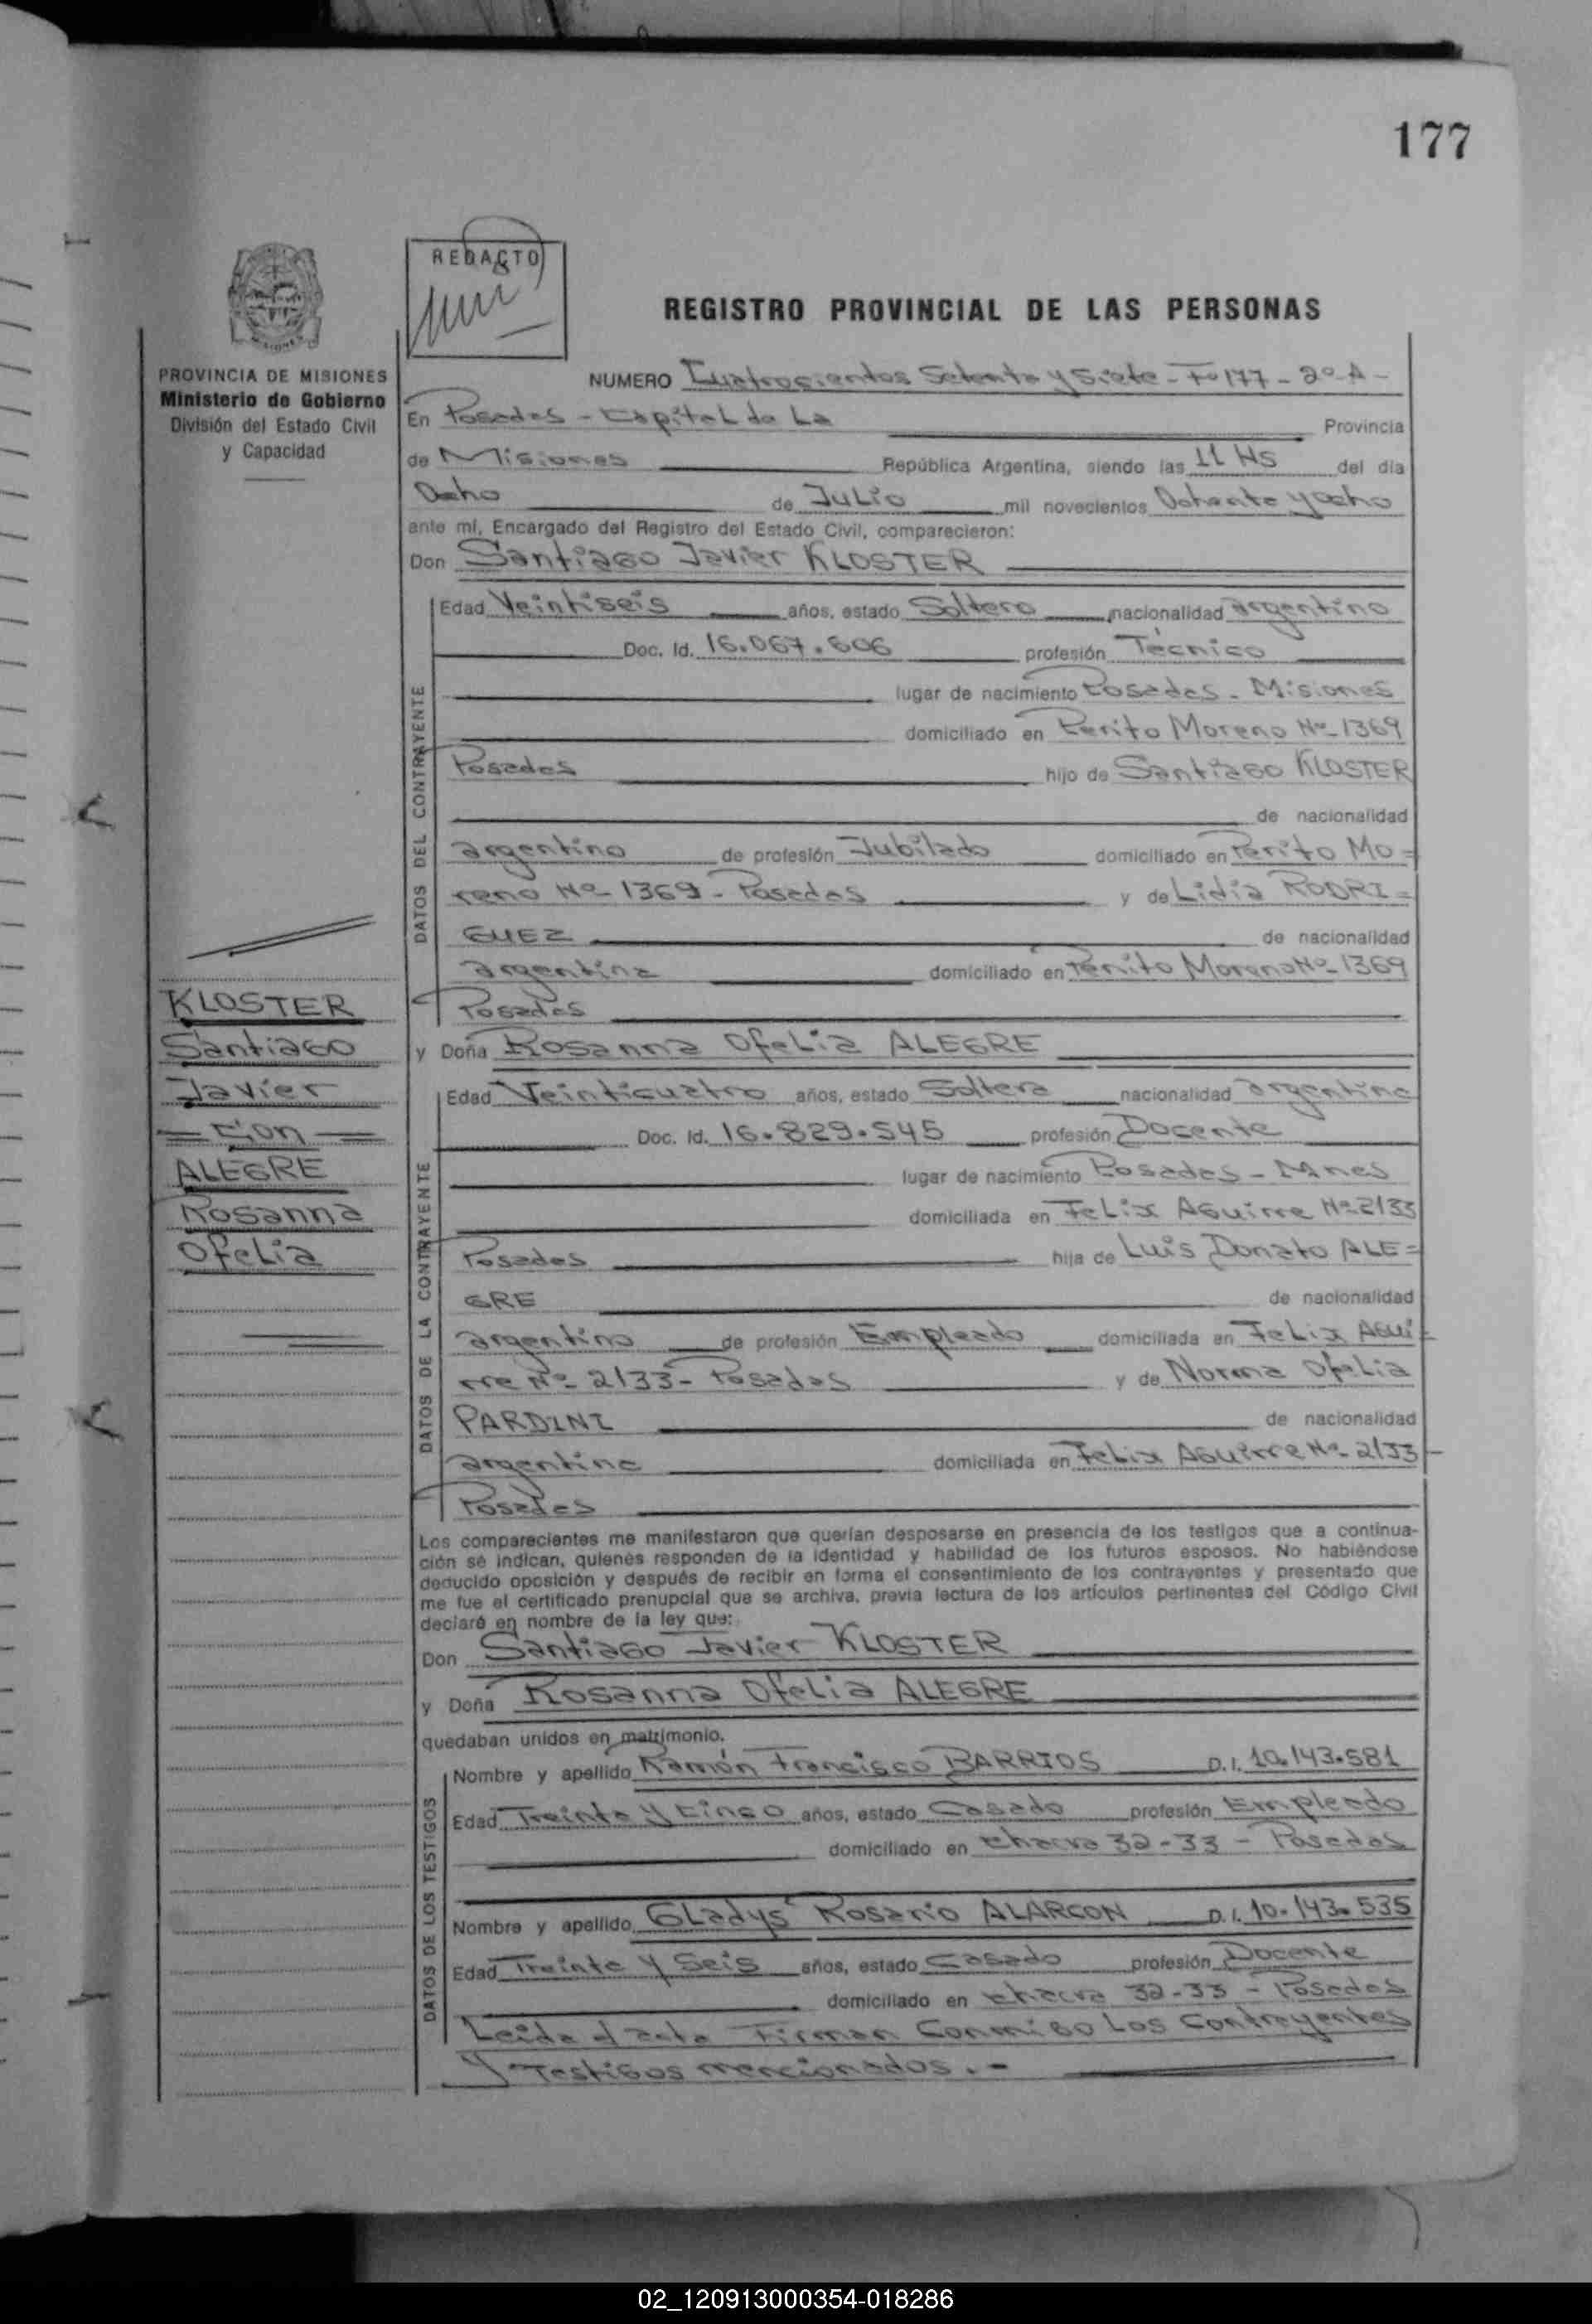 177
REDACTO
REGISTRO PROVINCIAL DE LAS PERSONAS
PROVINCIA DE MISIONES
Ministerio de Gobierno
División del Estado Civil
y Capacidad
NUMERO Cuatrocientos Setenta y Siete - Fº 177 - 2º A -
En Posadas - Capital de La Provincia
de Misiones República Argentina, siendo las 11 Hs del día
Ocho de Julio mil novecientos Ochenta y ocho
ante mí, Encargado del Registro del Estado Civil, comparecieron:
Don Santiago Javier KLOSTER
DATOS DEL CONTRAYENTE
Edad Veintiseis años, estado Soltero nacionalidad argentino
Doc. Id. 16.067.606 profesión Técnico
lugar de nacimiento Posadas - Misiones
domiciliado en Perito Moreno Nº 1369
Posadas hijo de Santiago KLOSTER
de nacionalidad
argentino de profesión Jubilado domiciliado en Perito Mo=
reno Nº 1369 - Posadas y de Lidia RODRI=
GUEZ de nacionalidad
argentina domiciliado en Perito Moreno Nº 1369
Posadas
KLOSTER
Santiago
Javier
= Con =
ALEGRE
Rosanna
Ofelia
y Doña Rosanna Ofelia ALEGRE
DATOS DE LA CONTRAYENTE
Edad Veinticuatro años, estado Soltera nacionalidad argentina
Doc. Id. 16.829.545 profesión Docente
lugar de nacimiento Posadas - Mnes
domiciliada en Felix Aguirre Nº 2133
Posadas hija de Luis Donato ALE=
GRE de nacionalidad
argentino de profesión Empleado domiciliada en Felix Agui=
rre Nº 2133 - Posadas y de Norma Ofelia
PARDINI de nacionalidad
argentina domiciliada en Felix Aguirre Nº 2133 -
Posadas
Los comparecientes me manifestaron que querían desposarse en presencia de los testigos que a continua-
ción se indican, quienes responden de la identidad y habilidad de los futuros esposos. No habiéndose
deducido oposición y después de recibir en forma el consentimiento de los contrayentes y presentado que
me fue el certificado prenupcial que se archiva, previa lectura de los artículos pertinentes del Código Civil
declaré en nombre de la ley que:
Don Santiago Javier KLOSTER
y Doña Rosanna Ofelia ALEGRE
quedaban unidos en matrimonio.
DATOS DE LOS TESTIGOS
Nombre y apellido Ramón Francisco BARRIOS D.I. 10.143.581
Edad Treinta y Cinco años, estado Casado profesión Empleado
domiciliado en Chacra 32-33 - Posadas
Nombre y apellido Gladys Rosario ALARCON D.I. 10.143.535
Edad Treinta y Seis años, estado Casado profesión Docente
domiciliado en Chacra 32-33 - Posadas
Leida el acta Firman Conmigo Los Contrayentes
y Testigos mencionados. -
02_120913000354-018286